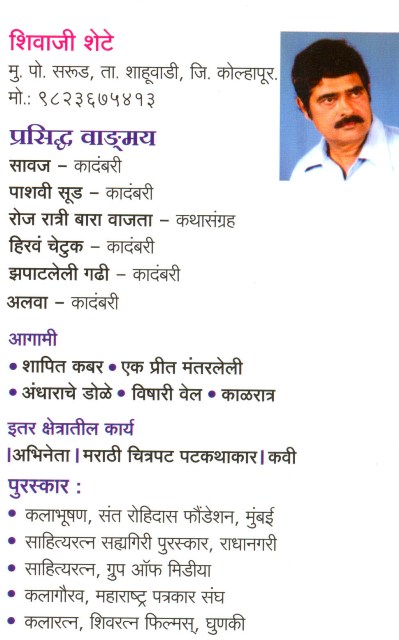 शिवाजी शेटे
मु. पो. सरूड, ता. शाहूवाडी, जि. कोल्हापूर.
मो.: ९८२३६७५४१३
प्रसिद्ध वाङ्मय
सावज – कादंबरी
पाशवी सूड – कादंबरी
रोज रात्री बारा वाजता – कथासंग्रह
हिरवं चेटुक – कादंबरी
झपाटलेली गढी – कादंबरी
अलवा – कादंबरी
आगामी
• शापित कबर • एक प्रीत मंतरलेली
• अंधाराचे डोळे • विषारी वेल • काळरात्र
इतर क्षेत्रातील कार्य
|अभिनेता | मराठी चित्रपट पटकथाकार| कवी
पुरस्कार :
• कलाभूषण, संत रोहिदास फौंडेशन, मुंबई
• साहित्यरत्न सह्यगिरी पुरस्कार, राधानगरी
• साहित्यरत्न, ग्रुप ऑफ मिडीया
• कलागौरव, महाराष्ट्र पत्रकार संघ
• कलारत्न, शिवरत्न फिल्मस्, घुणकी